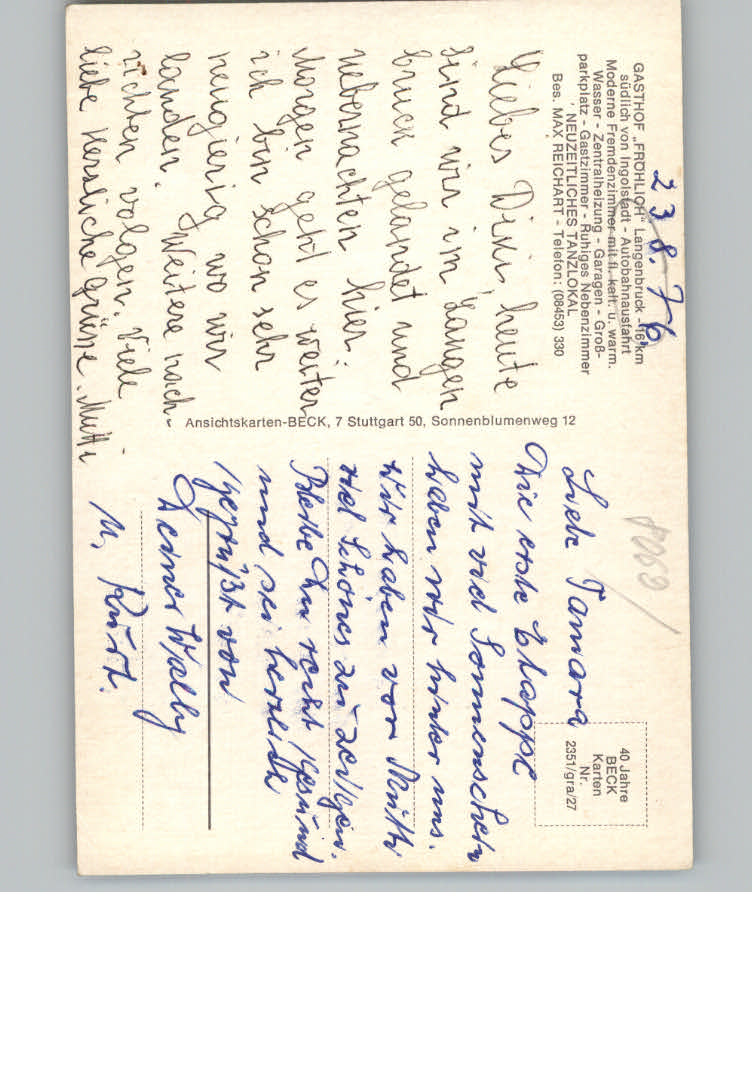 23 8. 76
GASTHOF „FRÖHLICH" Langenbruck - 16 km
südlich von Ingolstadt - Autobahnausfahrt
Moderne Fremdenzimmer mit fl. kalt. u. warm.
Wasser - Zentralheizung - Garagen - Groß-
parkplatz - Gastzimmer - Ruhiges Nebenzimmer
NEUZEITLICHES TANZLOKAL
Bes. MAX REICHART - Telefon: (08453) 330
Liebes Dixi, heute
sind wir im Langen
bruck gelandet und
uebernachten hier.
Morgen geht es weiter
ich bin schon sehr
neugierig wo wir
landen. Weitere nach-
richten volgen. Viele
liebe herzliche Grüsse. Mutti
Ansichtskarten-BECK, 7 Stuttgart 50, Sonnenblumenweg 12
40 Jahre
BECK
Karten
Nr.
2351/gra/27
Liebe Tamara
Die erste Etappe
mit viel Sonnenschein
haben wir hinter uns.
Wir haben vor Mutti
viel Schönes zu zeigen.
Bleibe Du recht gesund
und sei herzlich
gegrüßt von
Deiner Wally
u. Kurt.